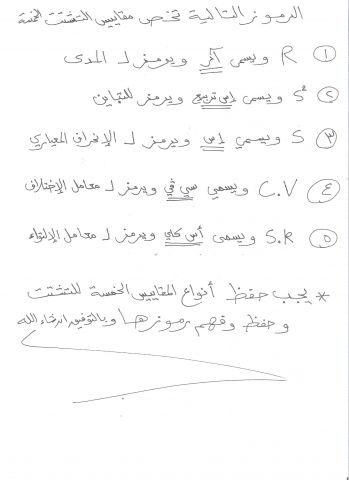 الرموز التالية تخص مقاييس التشتت الخمسة
① R ويسمى آر ويرمز لـ المدى
② S² ويسمى إس تربيع ويرمز للتباين
③ S ويسمي إس ويرمز لـ الإنحراف المعياري
④ C.V ويسمي سي في ويرمز لـ معامل الإختلاف
⑤ S.K ويسمى أس كاي ويرمز لـ معامل الإلتواء
* يجب حفظ أنواع المقاييس الخمسة للتشتت
و حفظ وفهم رموزها وبالتوفيق انشاء الله